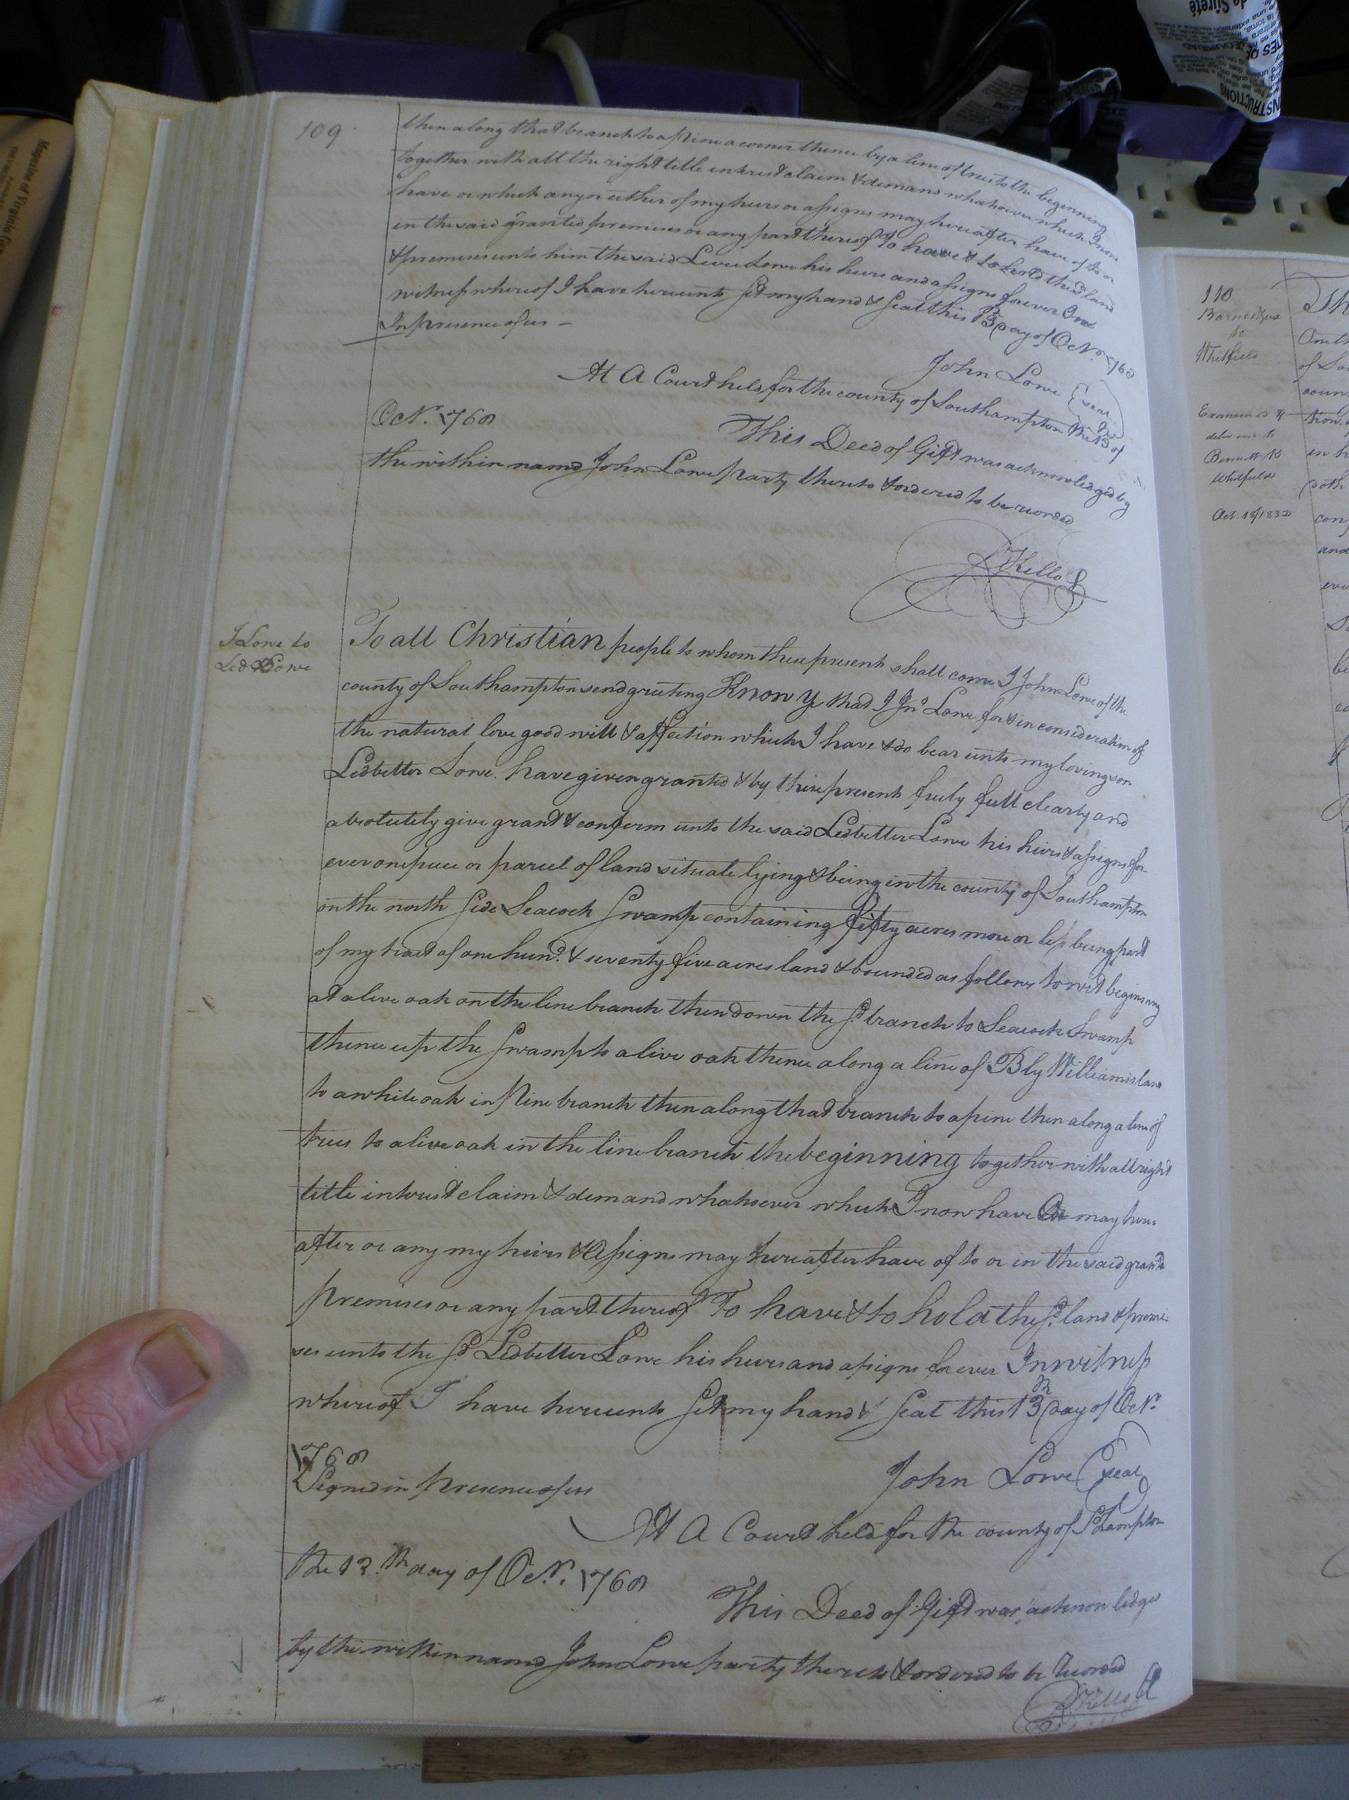 109
then along that branch to a pine a corner thence by a line of trees to the beginning
together with all the right title intrest claim & demand whatsoever which I now
have or which any or either of my heirs or assigns may hereafter have of to or
in the said granted premises or any part thereof To have & to hold the sd land
& premises unto him the said Levi Lowe his heirs and assigns forever In
witness whereof I have hereunto set my hand & seal this 13 day of Octr. 1768
In presence of us —
John Lowe (seal)
At A Court held for the county of Southampton the 13th of
Octr. 1768
This Deed of Gift was acknowledged by
the within named John Lowe party thereto & ordered to be recorded
R Kello
J Lowe to
Led Lowe
To all Christian people to whom these present shall come I John Lowe of the
county of Southampton send greeting Know Ye that I Jno Lowe for & in consideration of
the natural love good will & affection which I have & do bear unto my loving son
Ledbetter Lowe have given granted & by these present freely full clearly and
absolutely give grant & confirm unto the said Ledbetter Lowe his heirs & assigns for
ever one piece or parcel of land situate lying & being in the county of Southampton
on the north side Seacock Swamp containing fifty acres more or less being part
of my tract of one hund. & seventy five acres land & bounded as follows to wit begining
at a live oak on the line branch then down the sd branch to Seacock Swamp
thence up the swamp to a live oak thence along a line of Bly Williams land
to a white oak in Pine branch then along that branch to a pine then along a line of
trees to a live oak in the line branch the beginning together with all right
title intrust claim & demand whatsoever which I now have Or may here
after or any my heirs & Assigns may hereafter have of to or in the said granted
premises or any part thereof To have & to hold the sd land & premi-
ses unto the sd Ledbetter Lowe his heirs and assigns for ever In witness
whereof I have hereunto set my hand & seal this 13th day of Octr.
1768
Signed in presence of us
John Lowe (seal)
At A Court held for the county of Sthampton
the 13.th day of Octr. 1768
This Deed of Gift was acknowledge
by the within named John Lowe party thereto & ordered to be recorded
R Kello
110
Barnes &ux
to
Whitfield
Examined &
delivered to
Bennett B
Whitfield
Oct. 18/1832
Magazine of Virginia